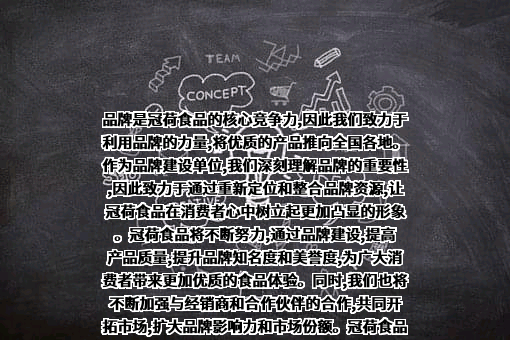 TEAM
CONCEPT
品牌是冠荷食品的核心竞争力,因此我们致力于
利用品牌的力量,将优质的产品推向全国各地。
作为品牌建设单位,我们深刻理解品牌的重要性
,因此致力于通过重新定位和整合品牌资源,让
冠荷食品在消费者心中树立起更加凸显的形象
。冠荷食品将不断努力,通过品牌建设,提高
产品质量,提升品牌知名度和美誉度,为广大消
费者带来更加优质的食品体验。同时,我们也将
不断加强与经销商和合作伙伴的合作,共同开
拓市场,扩大品牌影响力和市场份额。冠荷食品